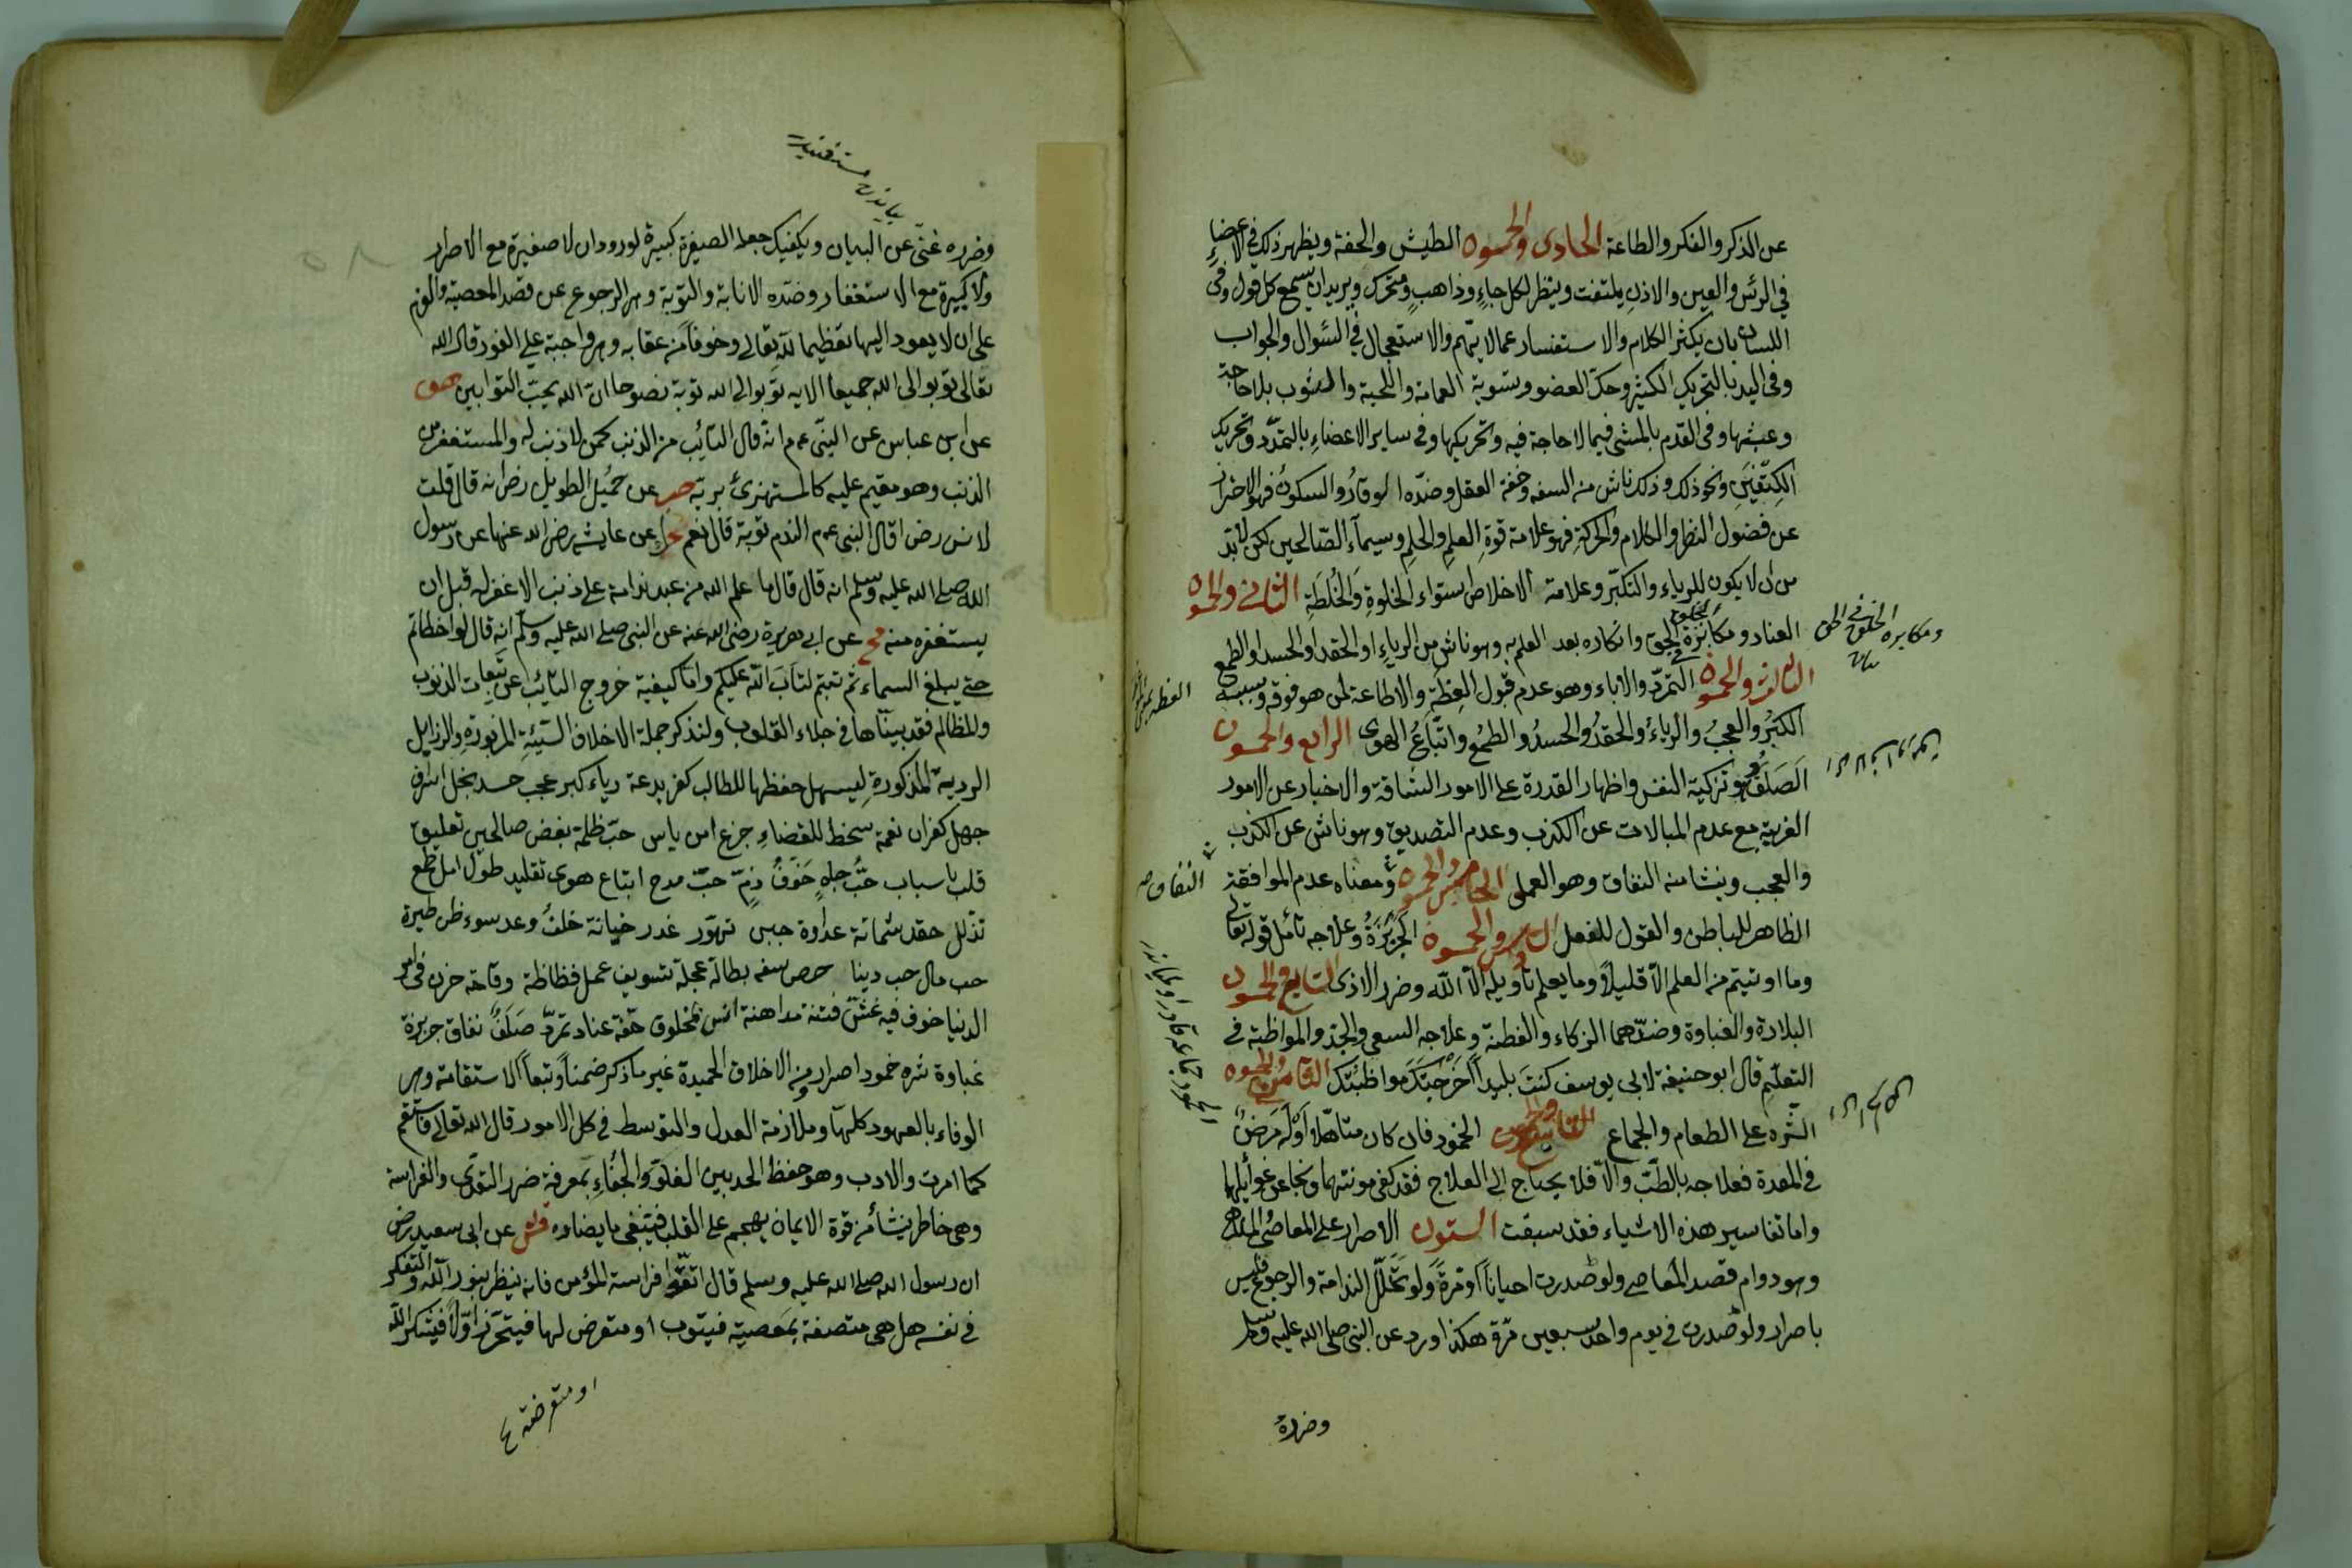 عن الذكر والفكر والطاعة الحادى والخمسون الطيش والخفة ويظهر ذلك في الاعضاء
في الرئس والعين والاذن يلتفت وينظر لكل جاءٍ وذاهبٍ ومتحرك ويريد ان يسمع كل قول وفى
اللسان بان يكثر الكلام والاستفسار عما لا يهمّ والاستعجال في السئوال والجواب
وفى اليد بالتحريك الكثير وحكّ العضو وتسوية العمامة واللحية والثوب بلا حاجة
وعبثها وفى القدم بالمشى فيما لا حاجة فيه وتحريكها وفى ساير الاعضاء بالتمدّد وتحريك
الكتفين ونحو ذلك وذلك ناش من السفه وخفة العقل وضدّه الوقارُ والسكونُ فهو الاحتراز
عن فضول النظر والكلام والحركةِ فهو علامة قوة العلمِ والحلمِ وسيمآء الصّالحين لكن لا بدّ
من ان لا يكون للرياء والتكبّر وعلامة الاخلاص استواء الخلوةِ والخُلطَةِ الثانى والخمسون
العناد ومكابرة الحق وانكاره بعد العلم به وهو ناش من الرياءِ او الحقد او الحسد او الطمع
الثالث والخمسون التمرّد والاباء وهو عدم قبول العِظَةِ والاطاعة لمن هو فوقه وسببه
الكبرُ والعجبُ والرياءُ والحقدُ والحسدُ والطمعُ واتّباعُ الهوى الرابع والخمسون
الصَلَفُ وهو تزكية النفس واظهار القدرة على الامور الشاقة والاخبار عن الامور
الغريبة مع عدم المبالات عن الكذب وعدم التصديق وهو ناش عن الكذب
والعجب وينشا منه النفاق وهو العملى الخامس والخمسون ومعناه عدم الموافقة
الظاهر للباطن والقول للفعل السادس والخمسون الجَرْبَزَةُ وعلاجه تأمّل قوله تعالى
وما اوتيتم من العلم الّا قليلاً وما يعلم تأويله الّا اللّه وضرر الاذى السابع والخمسون
البلادة والغباوة وضدّهما الزكاء والفطنة وعلاجه السعى والجدّ والمواظبة في
التعلّمِ قال ابو حنيفة لابى يوسف كنتَ بليداً اَخْرَجَتْكَ مواظبتك الثامن والخمسون
الشَّرَه على الطعام والجماع التاسع والخمسون الخمود فان كان متاهّلاً اَوْ لَه مَرَضٌ
في المعدة فعلاجه بالطّب والّا فلا يحتاج الى العلاج فقد كفى مونتهما ونجا عن غوائلها
واما تفاسير هذه الاشياء فقد سبقت الستون الاصرار على المعاصى
وهو دوام قصد المعاصى ولو صدرت احياناً او مرّةً ولو تخلّل الندامة والرجوع فليس
باصرار ولو صدرت في يوم واحد سبعين مرّة هكذا ورد عن النبى صلى الله عليه وسلم
وضرره
ومكابره الحق
النفاق صه
وضرره غنىّ عن البيان ويكفيك جعله الصغيرة كبيرة لورود ان لا صغيرة مع الاصرار
ولا كبيرة مع الاستغفار وضدّه الانابة والتوبة وهو الرجوع عن قصد المعصية والعزم
على ان لا يعود اليها تعظيما للّه تعالى وخوفاً من عقابه وهو واجبة على الفور قال الله
تعالى توبوا الى الله جميعا الايه توبوا الى الله توبة نصوحا انّ الله يحبّ التوابين
عن ابن عباس عن النبىّ عم انّه قال التائب من الذنب كمن لا ذنب له والمستغفر من
الذنب وهو مقيم عليه كالمستهزئ بربّه عن حُمَيْل الطويل رض انه قال قلت
لانس رض اقال النبى عم الندم توبة قال نعم عن عايشه رض الله عنها عن رسول
الله صلى الله عليه وسلم انه قال قال ما علم الله من عبد ندامة على ذنب الا غفر له قبل ان
يستغفره منه عن ابى هريرة رضى الله عنه عن النبى صلى الله عليه وسلّم انه قال لو اخطاتم
حتى يبلغ السماء ثم تبتم لتابَ اللّه عليكم وامّا كيفية خروج التائب عن تبعات الذنوب
والمظالم فقد بيّنّاها في جلاء القلوب ولنذكر جملة الاخلاق السّيّئةِ المزبورةِ والرزايل
الردية المذكورةِ ليسهل حفظها للطالب كفر بدعة رياء كبر عجب حسد بخل اسراف
جهل كفران نعمة سخط للقضاءِ جزع امن ياس حبّ ظلمة بغض صالحين تعليق
قلب باسباب حبُّ جاهٍ خَوفُ ذمٍّ حبّ مدح ابتاع هوى تقليد طول امل طمع
تذلل حقد شماتة عداوة جبن تهوّر غدر خيانة خلفُ وعد سوء ظن طيرة
حب مال حب دينا حرص سفه بطالة عجلة تسويف عمل فظاظة وقاحة حزن في امر
الدنيا خوف فيه غشّ فتنة مداهنة انس مخلوق خفّة عناد تمرّد صَلَفٌ نفاق جربزة
غباوة شره خمود اصرار ومن الاخلاق الحميدة غير ما ذكر ضمناً وتبعاً الاستقامة وهو
الوفاء بالعهود كلّها وملازمة العدل والتوسط في كل الامور قال الله تعالى فاستقم
كما امرت والادب وهو حفظ الحد بين الغلوّ والجفاءِ بمعرفة ضرر التعدّى والفراسة
وهى خاطر ينشأ من قوة الايمان يهجم على القلب فينفى ما يضاده عن ابى سعيد رض
ان رسول الله صلى الله عليه وسلم قال اتّقوا فراسة المؤمن فانه ينظر بنور اللّه والتفكر
في نفسه هل هى متصفة بمَعصية فيتوب او متعرض لها فيتحرّز اوّلاً فيشكر اللّه
او متعرضة